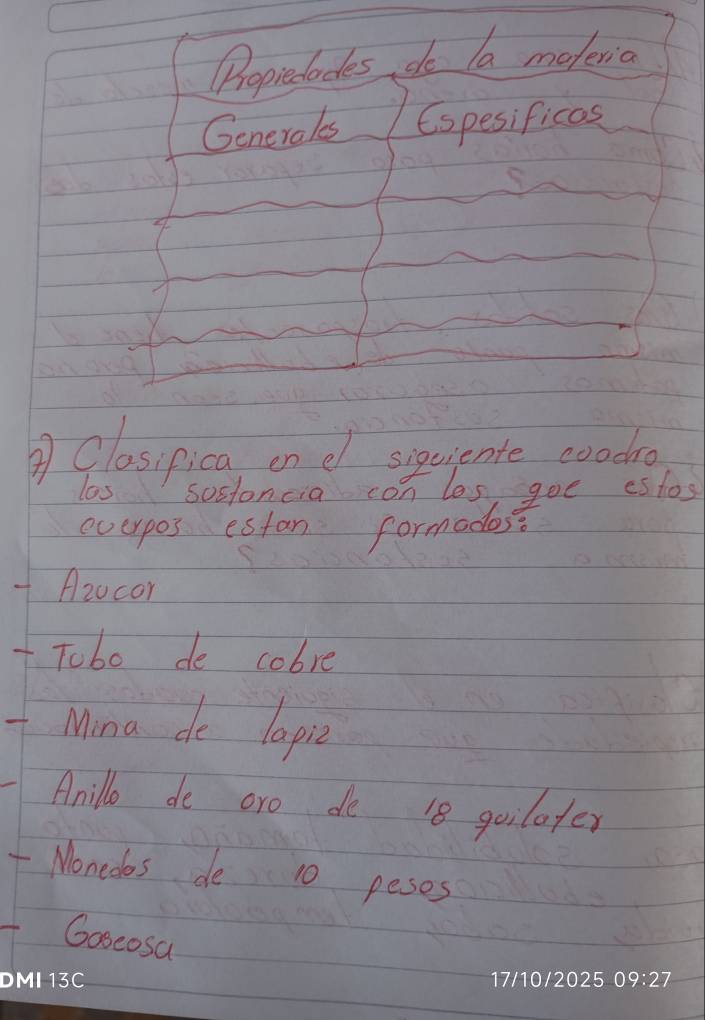 Propiedades de la materia
Generales Espesificas
7) Clasifica en el siguiente cuadro
las sustancia con las que estos
cuerpos estan formados:
- Azucar
- Tubo de cobre
- Mina de lapiz
- Anillo de oro de 18 quilater
- Monedas de 10 pesos
- Gaseosa
DMI 13C 17/10/2025 09:27